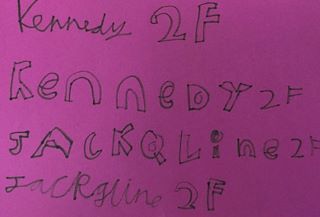 Kennedy 2F
KENNEDY 2F
JACKQLine 2F
Jackqline 2F